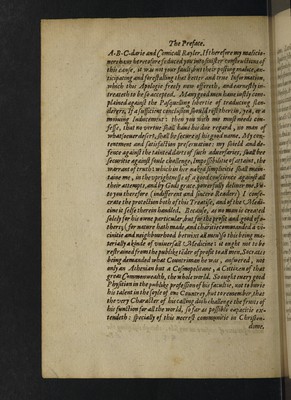 The Preface.
A-B-C-darie and Comicall Rayler. If therefore my malicio-
mer chant heretofore seduced you into sinister constructions of
this cause, it was not your fault, but their posting malice, an-
ticipating and forestalling that better and true Information,
which this Apologie freely now offereth, and earnestly in-
treateth to be accepted. Many good men haue iustly com-
plained against the Pasquelling libertie of traducing slan-
derers, if a sufficient conclusion should rest therein, yea, or a
mouing Inducement: then you with me must needs con-
fesse, that no vertue shall haue his due regard, no man of
what soeuer desert, shall be secure of his good name. My con-
tentment and satisfaction preseruatiue: my shield and de-
fence against the tainted darts of such aduersaries; shall bee
securitie against foule challenge, Impossibilitie of attaint, the
warrant of truth: which in her naked simplicitie shall main-
taine me, in the vprightnesse of a good conscience against all
their attempts, and by Gods grace powerfully deliuer me. So
to you therefore (indifferent and sincere Readers) I conse-
crate the protection both of this Treatise, and of the Medi-
cine it selfe therein handled. Because, as no man is created
solely for his owne particular but for the profit and good of o-
thers; (for nature hath made, and charitie commanded a vi-
cinitie and neighbourhood betwixt all men) so this being ma-
terially a kinde of vniuersall Medicine: it ought not to be
restrained from the publike tilder of profit to all men, Socrates
being demanded what Countriman he was, answered, not
only an Athenian but a Cosmopolitane, a Citticen of that
great Commonwealth, the whole world. So ought euery good
Physitian in the publike profession of his facultie, not to burie
his talent in the soyle of one Country, but to remember that
the very Character of his calling doth challenge the fruits of
his function for all the world, so far as possible capacitie ex-
tendeth: specially of this neerest communitie in Christen-
dome,